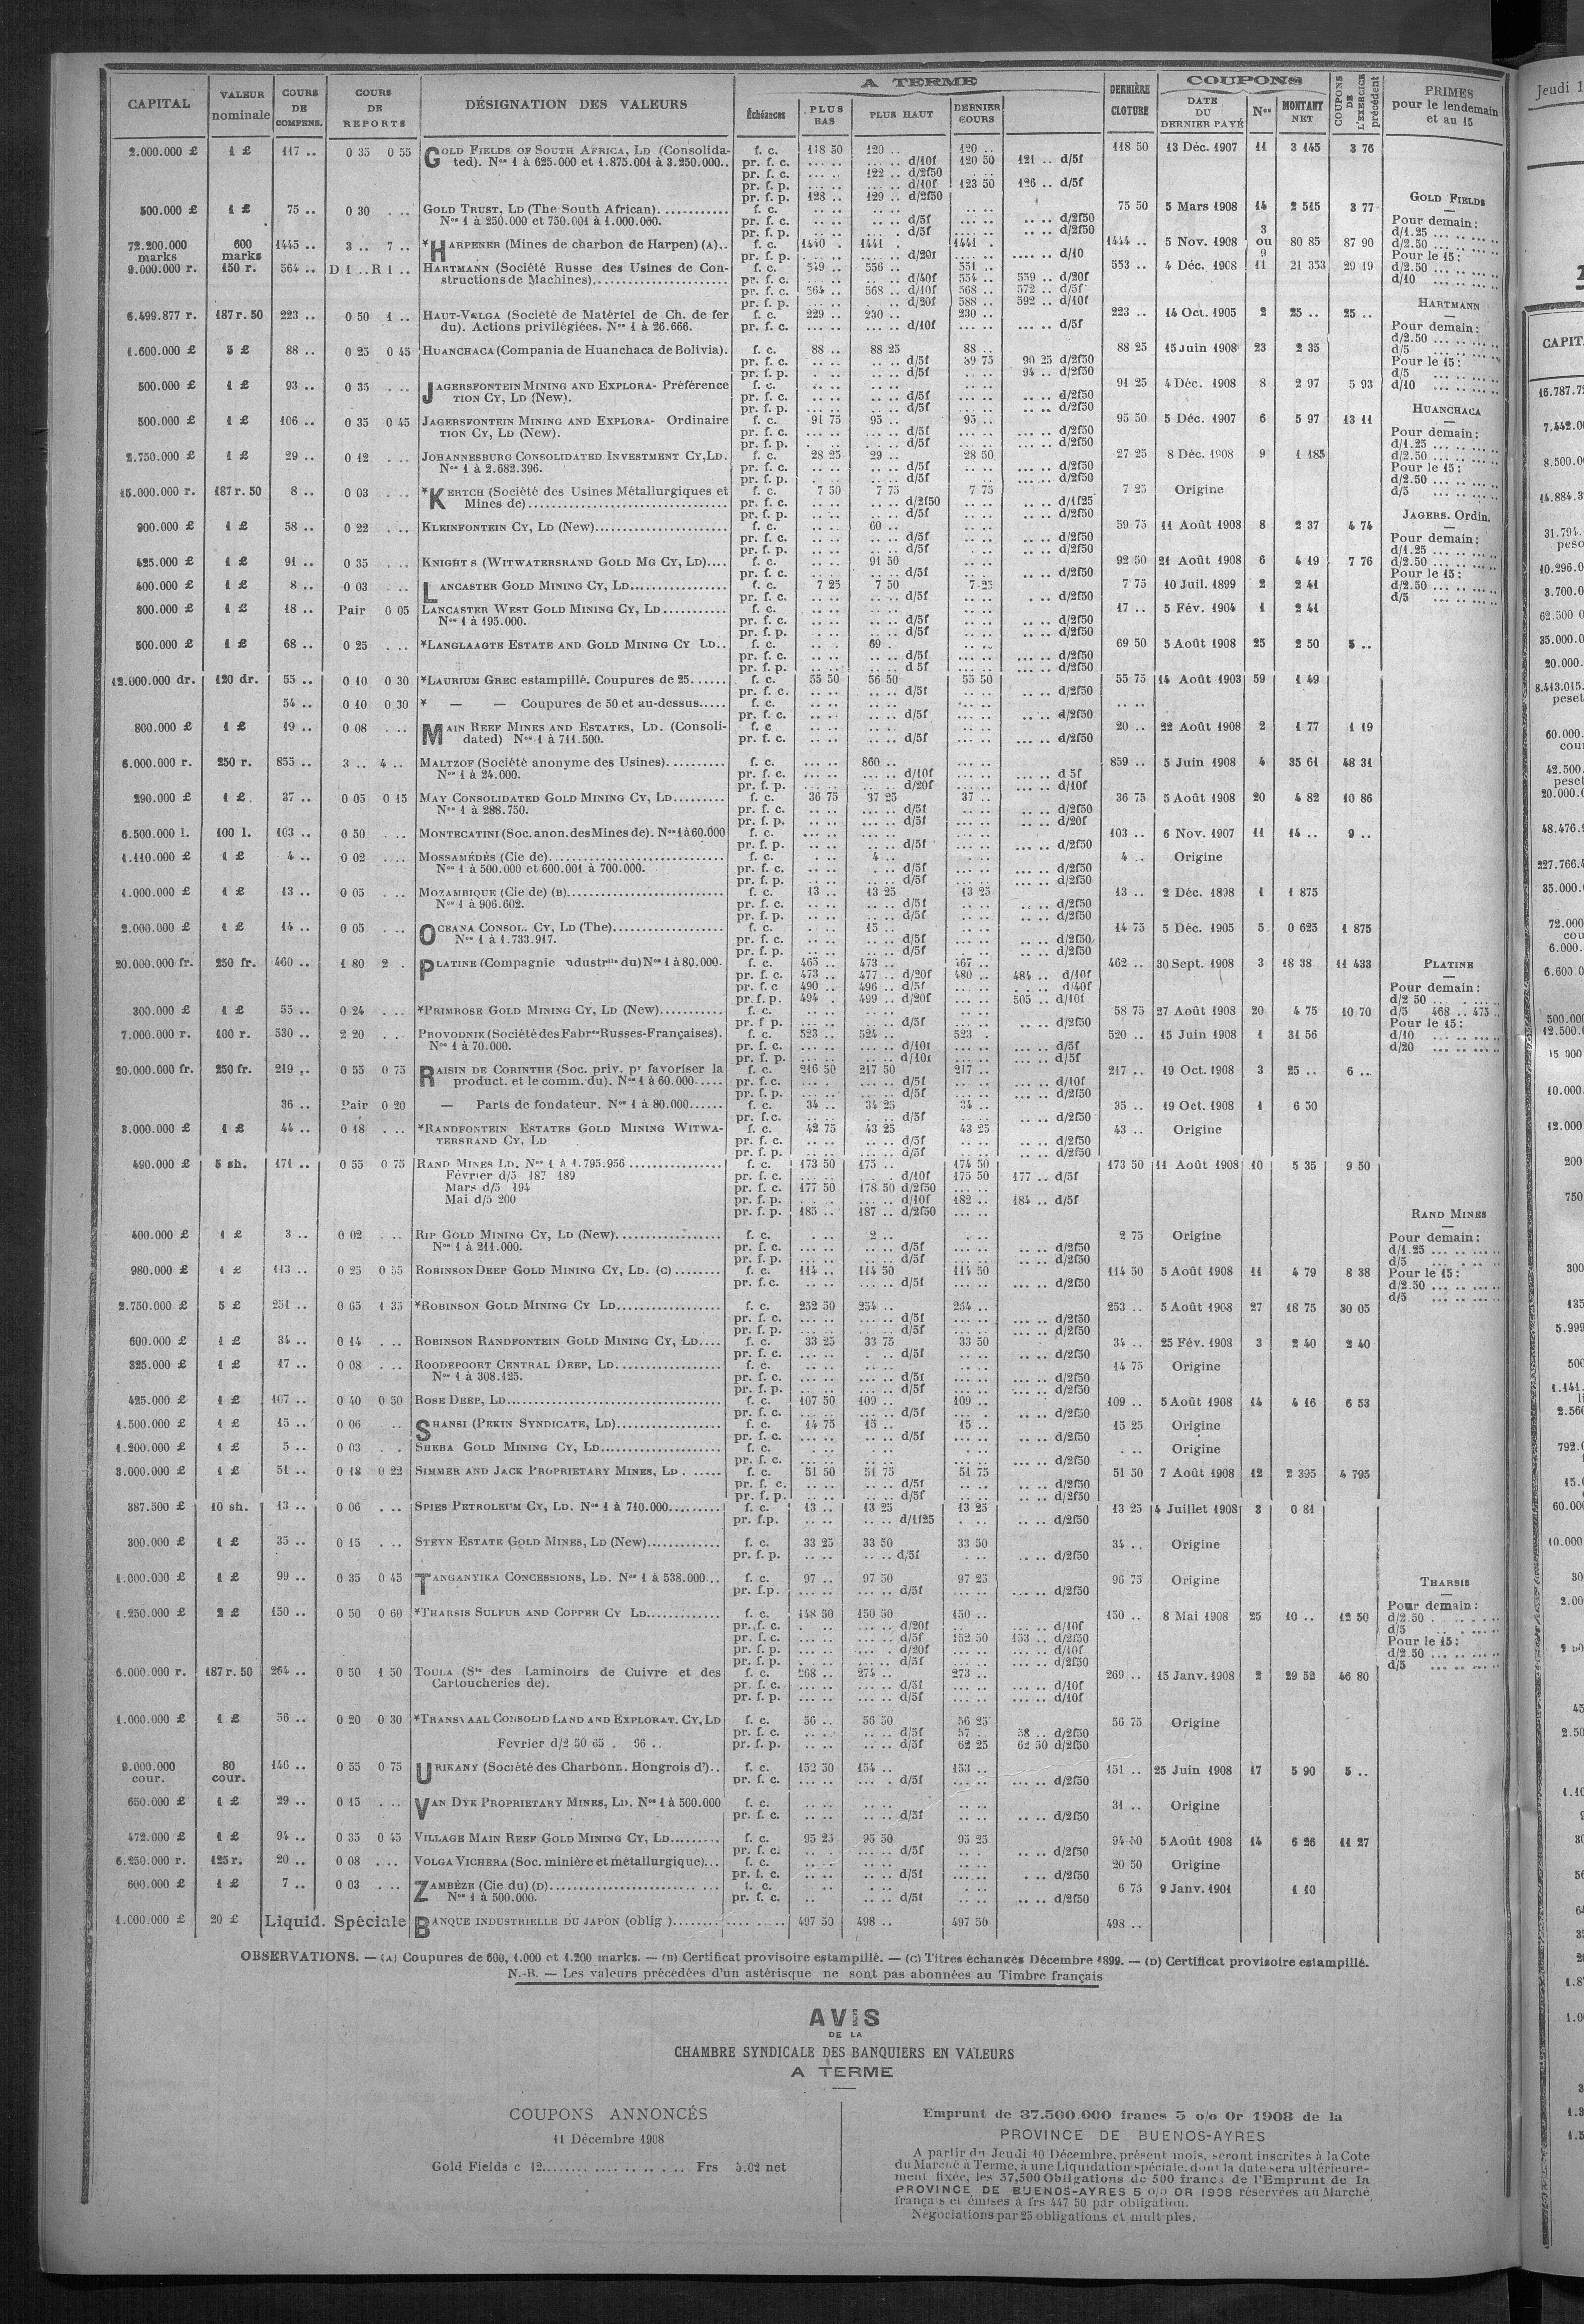 A TERME
COUPONS
CAPITAL VALEUR nominale COURS DE COMPENS. COURS DE REPORTS DÉSIGNATION DES VALEURS Échéances PLUS BAS PLUS HAUT DERNIER COURS DERNIÈRE CLOTURE DATE DU DERNIER PAYÉ Nos MONTANT NET COUPONS DE L'EXERCICE précédent PRIMES pour le lendemain et au 15
2.000.000 £ 1 £ 117 .. 0 35 0 55 GOLD FIELDS OF SOUTH AFRICA, LD (Consolida- f. c. 118 50 120 .. 120 .. 118 50 13 Déc. 1907 11 3 145 3 76
ted). Nos 1 à 625.000 et 1.875.001 à 3.250.000.. pr. f. c. .. .. .. .. d/10f 120 50 121 .. d/5f
pr. f. c. .. .. 122 .. d/2f50
pr. f. p. .. .. .. .. d/10f 123 50 126 .. d/5f
pr. f. p. 128 .. 129 .. d/2f50
500.000 £ 1 £ 75 .. 0 30 . .. GOLD TRUST, LD (The South African). f. c. .. .. .. .. .. .. 75 50 5 Mars 1908 14 2 515 3 77
Nos 1 à 250.000 et 750.001 à 1.000.000. pr. f. c. .. .. .. .. d/5f .. .. .. .. d/2f50
pr. f. p. .. .. .. .. d/5f .. .. .. .. d/2f50
72.200.000 marks 600 marks 1445 .. 3 .. 7 .. *HARPENER (Mines de charbon de Harpen) (A).. f. c. 1440 . 1441 . 1441 . 1444 .. 5 Nov. 1908 3 ou 9 80 85 87 90
pr. f. p. .. .. .. .. d/20f .. .. .. .. d/10
9.000.000 r. 150 r. 564 .. D 1 .. R 1 .. HARTMANN (Société Russe des Usines de Con- f. c. 549 .. 556 .. 551 .. 553 .. 4 Déc. 1908 11 21 353 29 19
structions de Machines) pr. f. c. .. .. .. .. d/40f 554 .. 559 .. d/20f
pr. f. c. 564 .. 568 .. d/10f 568 .. 572 .. d/5f
pr. f. p. .. .. .. .. d/20f 588 .. 592 .. d/10f
6.499.877 r. 187 r. 50 223 .. 0 50 1 .. HAUT-VOLGA (Société de Matériel de Ch. de fer f. c. 229 .. 230 .. 230 .. 223 .. 14 Oct. 1905 2 25 .. 25 ..
du). Actions privilégiées. Nos 1 à 26.666. pr. f. c. .. .. .. .. d/10f .. .. d/5f
1.600.000 £ 5 £ 88 .. 0 25 0 45 HUANCHACA (Compania de Huanchaca de Bolivia). f. c. 88 .. 88 25 88 .. 88 25 15 Juin 1908 23 2 35
pr. f. c. .. .. .. .. d/5f 89 75 90 25 d/2f50
pr. f. p. .. .. .. .. d/5f .. .. 94 .. d/2f50
500.000 £ 1 £ 93 .. 0 35 . .. JAGERSFONTEIN MINING AND EXPLORA- Préférence f. c. .. .. .. .. .. .. 91 25 4 Déc. 1908 8 2 97 5 93
TION CY, LD (New). pr. f. c. .. .. .. .. d/5f .. .. d/2f50
pr. f. p. .. .. .. .. d/5f .. .. d/2f50
500.000 £ 1 £ 106 .. 0 35 0 45 JAGERSFONTEIN MINING AND EXPLORA- Ordinaire f. c. 91 75 95 .. 95 .. 95 50 5 Déc. 1907 6 5 97 13 11
TION CY, LD (New). pr. f. c. .. .. .. .. d/5f .. .. d/2f50
pr. f. p. .. .. .. .. d/5f .. .. d/2f50
2.750.000 £ 1 £ 29 .. 0 12 . .. JOHANNESBURG CONSOLIDATED INVESTMENT CY, LD. f. c. 28 25 29 .. 28 50 27 25 8 Déc. 1908 9 1 185
Nos 1 à 2.682.396. pr. f. c. .. .. .. .. d/5f .. .. d/2f50
pr. f. p. .. .. .. .. d/5f .. .. d/2f50
15.000.000 r. 187 r. 50 8 .. 0 03 . .. *KERTCH (Société des Usines Métallurgiques et f. c. 7 50 7 75 7 75 7 25 Origine
Mines de) pr. f. c. .. .. .. .. d/2f50 .. .. d/1f25
pr. f. p. .. .. .. .. d/5f .. .. d/2f50
900.000 £ 1 £ 58 .. 0 22 . .. KLEINFONTEIN CY, LD (New) f. c. .. .. 60 .. .. .. 59 75 11 Août 1908 8 2 37 4 74
pr. f. c. .. .. .. .. d/5f .. .. d/2f50
pr. f. p. .. .. .. .. d/5f .. .. d/2f50
425.000 £ 1 £ 91 .. 0 35 . .. KNIGHT S (WITWATERSRAND GOLD MG CY, LD).... f. c. .. .. 91 50 .. .. 92 50 21 Août 1908 6 4 19 7 76
pr. f. c. .. .. .. .. d/5f .. .. d/2f50
400.000 £ 1 £ 8 .. 0 03 . .. LANCASTER GOLD MINING CY, LD f. c. 7 25 7 50 7 25 7 75 10 Juil. 1899 2 2 41
pr. f. c. .. .. .. .. d/5f .. .. d/2f50
300.000 £ 1 £ 18 .. Pair 0 05 LANCASTER WEST GOLD MINING CY, LD f. c. .. .. .. .. .. .. 17 .. 5 Fév. 1904 1 2 41
Nos 1 à 195.000. pr. f. c. .. .. .. .. d/5f .. .. d/2f50
pr. f. p. .. .. .. .. d/5f .. .. d/2f50
500.000 £ 1 £ 68 .. 0 25 . .. *LANGLAAGTE ESTATE AND GOLD MINING CY LD.. f. c. .. .. 69 . .. .. 69 50 5 Août 1908 25 2 50 5 ..
pr. f. c. .. .. .. .. d/5f .. .. d/2f50
pr. f. p. .. .. .. .. d 5f .. .. d/2f50
12.000.000 dr. 120 dr. 55 .. 0 10 0 30 *LAURIUM GREC estampillé. Coupures de 25 f. c. 55 50 56 50 55 50 55 75 14 Août 1903 59 1 49
pr. f. c. .. .. .. .. d/5f .. .. d/2f50
54 .. 0 10 0 30 * — — Coupures de 50 et au-dessus f. c. .. .. .. .. .. .. .. ..
pr. f. c. .. .. .. .. d/5f .. .. d/2f50
800.000 £ 1 £ 19 .. 0 08 . .. MAIN REEF MINES AND ESTATES, LD. (Consoli- f. c .. .. .. .. .. .. 20 .. 22 Août 1908 2 1 77 1 19
dated) Nos 1 à 711.500. pr. f. c. .. .. .. .. d/5f .. .. d/2f50
6.000.000 r. 250 r. 855 .. 3 .. 4 .. MALTZOF (Société anonyme des Usines) f. c. .. .. 860 .. .. .. 859 .. 5 Juin 1908 4 35 61 48 31
Nos 1 à 24.000. pr. f. c. .. .. .. .. d/10f .. .. d 5f
pr. f. p. .. .. .. .. d/20f .. .. d/10f
290.000 £ 1 £ 37 .. 0 05 0 15 MAY CONSOLIDATED GOLD MINING CY, LD f. c. 36 75 37 25 37 .. 36 75 5 Août 1908 20 4 82 10 86
Nos 1 à 288.750. pr. f. c. .. .. .. .. d/5f .. .. d/2f50
pr. f. p. .. .. .. .. d/5f .. .. d/20f
6.500.000 l. 100 l. 103 .. 0 50 . .. MONTECATINI (Soc. anon. des Mines de). Nos 1 à 60.000 f. c. .. .. .. .. .. .. 103 .. 6 Nov. 1907 11 14 .. 9 ..
pr. f. p. .. .. .. .. d/5f .. .. d/2f50
1.110.000 £ 1 £ 4 .. 0 02 . .. MOSSAMÉDÈS (Cie de) f. c. .. .. 4 .. .. .. 4 .. Origine
Nos 1 à 500.000 et 600.001 à 700.000. pr. f. c. .. .. .. .. d/5f .. .. d/2f50
pr. f. p. .. .. .. .. d/5f .. .. d/2f50
1.000.000 £ 1 £ 13 .. 0 05 . .. MOZAMBIQUE (Cie de) (B) f. c. 13 .. 13 25 13 25 13 .. 2 Déc. 1898 1 1 875
Nos 1 à 906.602. pr. f. c. .. .. .. .. d/5f .. .. d/2f50
pr. f. p. .. .. .. .. d/5f .. .. d/2f50
2.000.000 £ 1 £ 14 .. 0 05 . .. OCEANA CONSOL. CY, LD (The) f. c. .. .. 15 .. .. .. 14 75 5 Déc. 1905 5 0 625 1 875
Nos 1 à 1.733.917. pr. f. c. .. .. .. .. d/5f .. .. d/2f50
pr. f. p. .. .. .. .. d/5f .. .. d/2f50
20.000.000 fr. 250 fr. 460 .. 1 80 2 . PLATINE (Compagnie ndustrlle du) Nos 1 à 80.000. f. c. 465 .. 473 .. 467 .. 462 .. 30 Sept. 1908 3 18 38 11 433
pr. f. c. 473 .. 477 .. d/20f 480 .. 484 .. d/10f
pr. f. c 490 .. 496 .. d/5f .. .. d/40f
pr. f. p. 494 . 499 .. d/20f .. .. 505 .. d/10f
300.000 £ 1 £ 55 .. 0 24 . .. *PRIMROSE GOLD MINING CY, LD (New) f. c. .. .. .. .. .. .. 58 75 27 Août 1908 20 4 75 10 70
pr. f p. .. .. .. .. d/5f .. .. d/2f50
7.000.000 r. 100 r. 530 .. 2 20 . .. PROVODNIK (Société des Fabres Russes-Françaises). f. c. 523 .. 524 .. 523 . 520 .. 15 Juin 1908 1 31 56
Nos 1 à 70.000. pr. f. c. .. .. .. .. d/10f .. .. d/5f
pr. f. p. .. .. .. .. d/10f .. .. d/5f
20.000.000 fr. 250 fr. 219 .. 0 55 0 75 RAISIN DE CORINTHE (Soc. priv. pr favoriser la f. c. 216 50 217 50 217 .. 217 .. 19 Oct. 1908 3 25 .. 6 ..
product. et le comm. du). Nos 1 à 60.000 pr. f. c. .. .. .. .. d/5f .. .. d/10f
pr. f. p. .. .. .. .. d/5f .. .. d/2f50
36 .. Pair 0 20 — Parts de fondateur. Nos 1 à 80.000 f. c. 34 .. 34 25 34 .. 35 .. 19 Oct. 1908 1 6 50
pr. f. c. .. .. .. .. d/5f .. .. d/2f50
3.000.000 £ 1 £ 44 .. 0 18 . .. *RANDFONTEIN ESTATES GOLD MINING WITWA- f. c. 42 75 43 25 43 25 43 .. Origine
TERSRAND CY, LD pr. f. c. .. .. .. .. d/5f .. .. d/2f50
pr. f. p. .. .. .. .. d/5f .. .. d/2f50
490.000 £ 5 sh. 171 .. 0 55 0 75 RAND MINES LD. Nos 1 à 1.795.956 f. c. 173 50 175 .. 174 50 173 50 11 Août 1908 10 5 35 9 50
Février d/5 187 189 pr. f. c. .. .. .. .. d/10f 175 50 177 .. d/5f
Mars d/5 194 pr. f. c. 177 50 178 50 d/2f50
Mai d/5 200 pr. f. p. .. .. .. .. d/10f 182 .. 184 .. d/5f
pr. f. p. 185 .. 187 .. d/2f50 .. ..
400.000 £ 1 £ 3 .. 0 02 . .. RIP GOLD MINING CY, LD (New) f. c. .. .. 2 .. .. .. 2 75 Origine
Nos 1 à 211.000. pr. f. c. .. .. .. .. d/5f .. .. d/2f50
pr. f. p. .. .. .. .. d/5f .. .. d/2f50
980.000 £ 1 £ 113 .. 0 25 0 55 ROBINSON DEEP GOLD MINING CY, LD. (C) f. c. 114 .. 114 50 114 50 114 50 5 Août 1908 11 4 79 8 38
pr. f. c. .. .. .. .. d/5f .. .. d/2f50
2.750.000 £ 5 £ 251 .. 0 65 1 35 *ROBINSON GOLD MINING CY LD f. c. 252 50 254 .. 254 .. 253 .. 5 Août 1908 27 18 75 30 05
pr. f. c. .. .. .. .. d/5f .. .. d/2f50
pr. f. p. .. .. .. .. d/5f .. .. d/2f50
600.000 £ 1 £ 34 .. 0 14 . .. ROBINSON RANDFONTEIN GOLD MINING CY, LD.... f. c. 33 25 33 75 33 50 34 .. 25 Fév. 1908 3 2 40 2 40
pr. f. c. .. .. .. .. d/5f .. .. d/2f50
325.000 £ 1 £ 17 .. 0 08 . .. ROODEPOORT CENTRAL DEEP, LD f. c. .. .. .. .. .. .. 14 75 Origine
Nos 1 à 308.125. pr. f. c. .. .. .. .. d/5f .. .. d/2f50
pr. f. p. .. .. .. .. d/5f .. .. d/2f50
425.000 £ 1 £ 107 .. 0 40 0 50 ROSE DEEP, LD f. c. 107 50 109 .. 109 .. 109 .. 5 Août 1908 14 4 16 6 53
pr. f. c. .. .. .. .. d/5f .. .. d/2f50
1.500.000 £ 1 £ 15 .. 0 06 .. SHANSI (PEKIN SYNDICATE, LD) f. c. 14 75 15 .. 15 .. 15 25 Origine
pr. f. c. .. .. .. .. d/5f .. .. d/2f50
1.200.000 £ 1 £ 5 .. 0 03 . . SHEBA GOLD MINING CY, LD f. c. .. .. .. .. .. .. . .. Origine
pr. f. c. .. .. .. .. .. .. d/2f50
3.000.000 £ 1 £ 51 .. 0 18 0 22 SIMMER AND JACK PROPRIETARY MINES, LD f. c. 51 50 51 75 51 75 51 50 7 Août 1908 12 2 395 4 795
pr. f. c. .. .. .. .. d/5f .. .. d/2f50
pr. f. p. .. .. .. .. d/5f .. .. d/2f50
387.500 £ 10 sh. 13 .. 0 06 . .. SPIES PETROLEUM CY, LD. Nos 1 à 710.000 f. c. 13 .. 13 25 13 25 13 25 4 Juillet 1908 3 0 81
pr. f.p. .. .. .. .. d/1f25 .. .. d/2f50
300.000 £ 1 £ 35 .. 0 15 . .. STEYN ESTATE GOLD MINES, LD (New) f. c. 33 25 33 50 33 50 34 .. Origine
pr. f. p. .. .. .. .. d/5f .. .. d/2f50
1.000.000 £ 1 £ 99 .. 0 35 0 45 TANGANYIKA CONCESSIONS, LD. Nos 1 à 538.000... f. c. 97 .. 97 50 97 25 96 75 Origine
pr. f.p. .. .. .. .. d/5f .. .. d/2f50
1.250.000 £ 2 £ 150 .. 0 50 0 60 *THARSIS SULFUR AND COPPER CY LD f. c. 148 50 150 50 150 .. 150 .. 8 Mai 1908 25 10 .. 12 50
pr. f. c. .. .. .. .. d/20f .. .. d/10f
pr. f. c. .. .. .. .. d/5f 152 50 153 .. d/2f50
pr. f. p. .. .. .. .. d/20f .. .. d/10f
pr. f. p. .. .. .. .. d/5f .. .. d/2f50
6.000.000 r. 187 r. 50 264 .. 0 50 1 50 TOULA (Sté des Laminoirs de Cuivre et des f. c. 268 .. 274 .. 273 .. 269 .. 15 Janv. 1908 2 29 52 46 80
Cartoucheries de). pr. f. c. .. .. .. .. d/5f .. .. d/10f
pr. f. p. .. .. .. .. d/5f .. .. d/10f
1.000.000 £ 1 £ 56 .. 0 20 0 30 *TRANSVAAL CONSOLID LAND AND EXPLORAT. CY, LD f. c. 56 .. 56 50 56 25 56 75 Origine
pr. f. c. .. .. .. .. d/5f 57 .. 58 .. d/2f50
Février d/2 50 65 . 66 .. pr. f. p. .. .. .. .. d/5f 62 25 62 50 d/2f50
9.000.000 cour. 80 cour. 146 .. 0 55 0 75 URIKANY (Société des Charbonn. Hongrois d').. f. c. 152 50 154 .. 153 .. 151 .. 25 Juin 1908 17 5 90 5 ..
pr. f. c. .. .. .. .. d/5f .. .. d/2f50
650.000 £ 1 £ 29 .. 0 15 . .. VAN DYK PROPRIETARY MINES, LD. Nos 1 à 500.000 f. c. .. .. .. .. .. .. 31 .. Origine
pr. f. c. .. .. .. .. d/5f .. .. d/2f50
472.000 £ 1 £ 94 .. 0 35 0 45 VILLAGE MAIN REEF GOLD MINING CY, LD f. c. 95 25 95 50 95 25 94 50 5 Août 1908 14 6 26 11 27
pr. f. c. .. .. .. .. d/5f .. .. d/2f50
6.250.000 r. 125 r. 20 .. 0 08 . .. VOLGA VICHERA (Soc. minière et métallurgique)... f. c. .. .. .. .. .. .. 20 50 Origine
pr. f. c. .. .. .. .. d/5f .. .. d/2f50
600.000 £ 1 £ 7 .. 0 03 . .. ZAMBÈZE (Cie du) (D) f. c. .. .. .. .. .. .. 6 75 9 Janv. 1901 1 10
Nos 1 à 500.000. pr. f. c. .. .. .. .. d/5f .. .. d/2f50
1.000.000 £ 20 £ Liquid. Spéciale BANQUE INDUSTRIELLE DU JAPON (oblig ) 497 50 498 .. 497 50 498 ..
GOLD FIELDS
Pour demain:
d/1.25 ... .. ... ..
d/2.50 ... .. ... ..
Pour le 15:
d/2.50 ... .. ... ..
d/10 ... .. ... ..
HARTMANN
Pour demain:
d/2.50 ... .. ... ..
d/5 ... .. ... ..
Pour le 15:
d/5 ... .. ... ..
d/10 ... .. ... ..
HUANCHACA
Pour demain:
d/1.25 ... .. ... ..
d/2.50 ... .. ... ..
Pour le 15:
d/2.50 ... .. ... ..
d/5 ... .. ... ..
JAGERS. Ordin.
Pour demain:
d/1.25 ... .. ... ..
d/2.50 ... .. ... ..
Pour le 15:
d/2.50 ... .. ... ..
d/5 ... .. ... ..
PLATINE
Pour demain:
d/2 50 ... .. ... ..
d/5 468 .. 475 ..
Pour le 15:
d/10 ... .. ... ..
d/20 ... .. ... ..
RAND MINES
Pour demain:
d/1.25 ... .. ... ..
d/5 ... .. ... ..
Pour le 15:
d/2.50 ... .. ... ..
d/5 ... .. ... ..
THARSIS
Pour demain:
d/2.50 ... .. ... ..
d/5 ... .. ... ..
Pour le 15:
d/2.50 ... .. ... ..
d/5 ... .. ... ..
OBSERVATIONS. — (A) Coupures de 600, 1.000 et 1.200 marks. — (B) Certificat provisoire estampillé. — (C) Titres échangés Décembre 1899. — (D) Certificat provisoire estampillé.
N.-B. — Les valeurs précédées d'un astérisque ne sont pas abonnées au Timbre français
AVIS
DE LA
CHAMBRE SYNDICALE DES BANQUIERS EN VALEURS
A TERME
COUPONS ANNONCÉS
11 Décembre 1908
Gold Fields c 12 Frs 5.02 net
Emprunt de 37.500.000 francs 5 o/o Or 1908 de la
PROVINCE DE BUENOS-AYRES
A partir du Jeudi 10 Décembre, présent mois, seront inscrites à la Cote
du Marché à Terme, à une Liquidation spéciale, dont la date sera ultérieure-
ment fixée, les 37,500 Obligations de 500 francs de l'Emprunt de la
PROVINCE DE BUENOS-AYRES 5 o/o OR 1908 réservées au Marché
français et émises à frs 447 50 par obligation.
Négociations par 25 obligations et mult ples.
Jeudi 1
CAPIT
16.787.7
7.442.0
8.500.0
14.884.3
31.794.
peso
10.296.0
3.700.0
62.500 0
35.000.0
20.000.
8.413.015.
peset
60.000.
cou
42.500.
peset
20.000.0
48.476.
227.766.
35.000.
72.000
cou
6.000.
6.600.0
500.000
12.500.
15 000
10.000.
12.000
200
750
300
135
5.999
500
1.141.
2.560
792.0
15.0
60.000
10.000
30
2.00
45
2.50